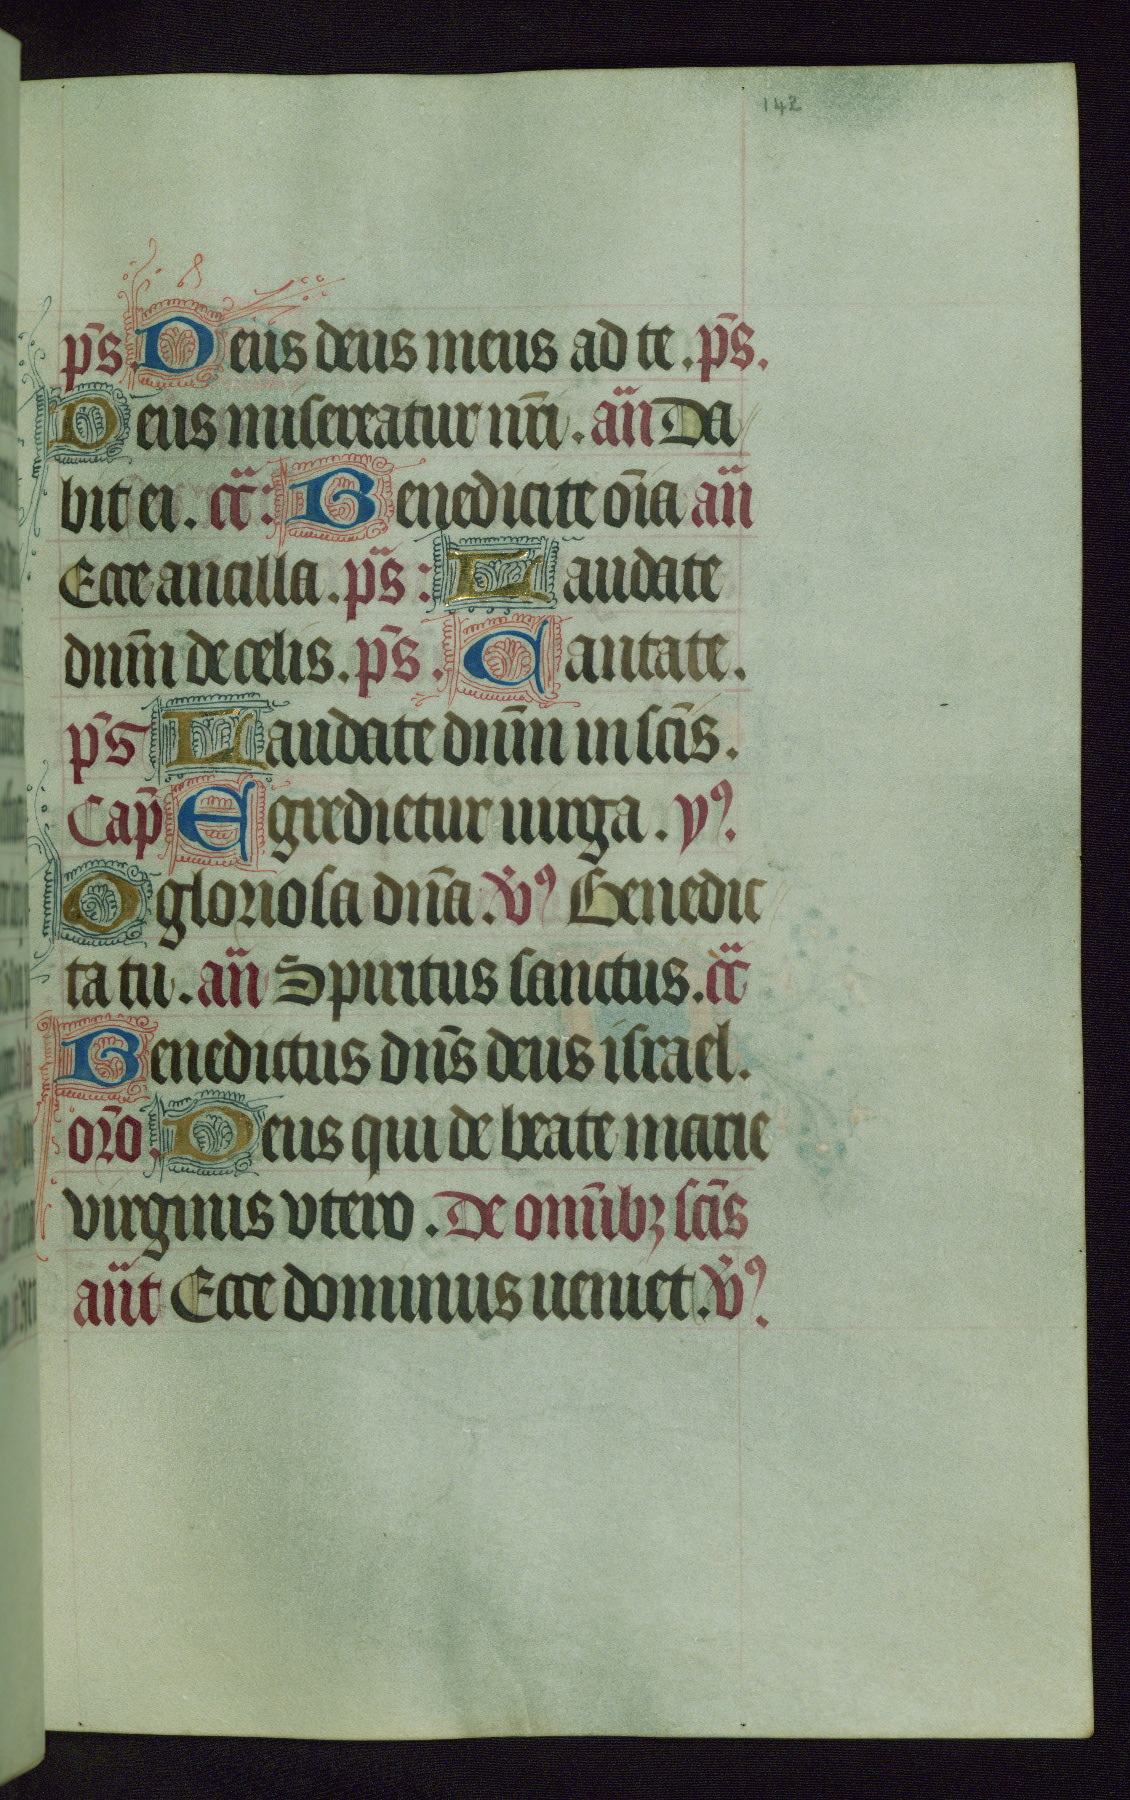 142
p̄s. Deus deus meus ad te. p̄s.
Deus misereatur nr̄i. an̄ Da
bit ei. cc̄: Benedicite oīa an̄
Ecce ancilla. p̄s: Laudate
dnm̄ de celis. p̄s. Cantate.
p̄s Laudate dnm̄ in sc̄is.
Cap̄ Egredietur uirga. v̉.
O gloriosa dn̄a. v̉ Benedic
ta tu. an̄ Spiritus sanctus. cc̄
Benedictus dn̄s deus israel.
or̄o. Deus qui de beate marie
virginis vtero. De omībꝫ sc̄is
an̄t Ecce dominus ueniet. v̉.